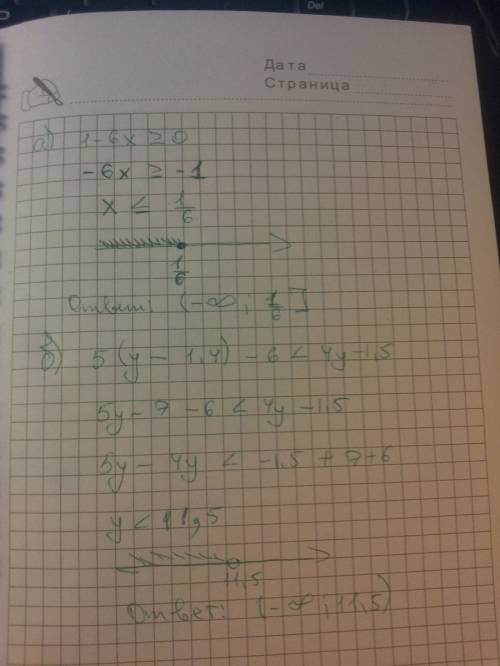 Del
Дата
Страница
а) 1-6x ≥ 0
-6x ≥ -1
x ≤ 1/6
1/6
Ответ: (-∞; 1/6]
б) 5(y - 1,4) - 6 < 4y - 1,5
5y - 7 - 6 < 4y - 1,5
5y - 4y < -1,5 + 7 + 6
y < 11,5
11,5
Ответ: (-∞; 11,5)